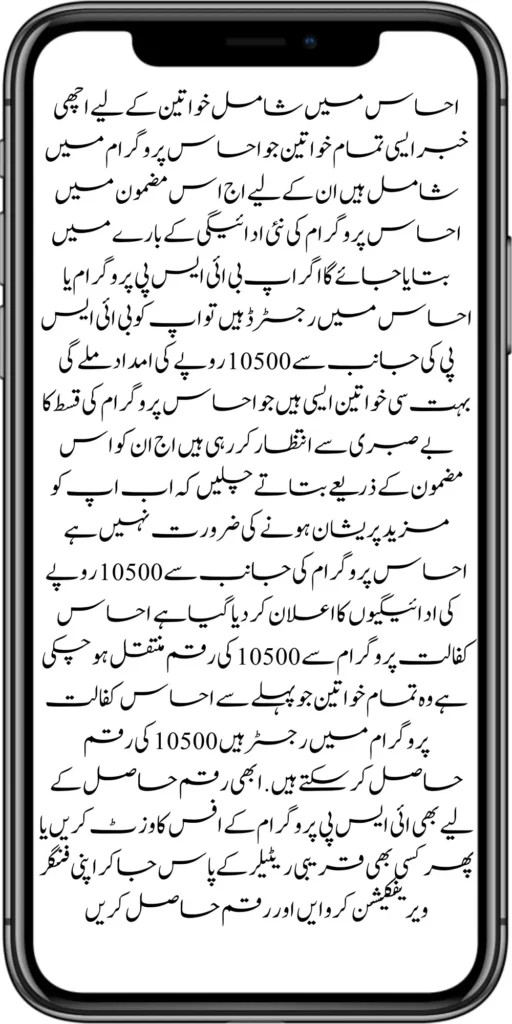 احساس میں شامل خواتین کے لیے اچھی
خبر ایسی تمام خواتین جو احساس پروگرام میں
شامل ہیں ان کے لیے اج اس مضمون میں
احساس پروگرام کی نئی ادائیگی کے بارے میں
بتایا جائے گا اگر اپ بی ائی ایس پی پروگرام یا
احساس میں رجسٹرڈ ہیں تو اپ کو بی ائی ایس
پی کی جانب سے 10500 روپے کی امداد ملے گی
بہت سی خواتین ایسی ہیں جو احساس پروگرام کی قسط کا
بے صبری سے انتظار کر رہی ہیں اج ان کو اس
مضمون کے ذریعے بتاتے چلیں کہ اب اپ کو
مزید پریشان ہونے کی ضرورت نہیں ہے
احساس پروگرام کی جانب سے 10500 روپے
کی ادائیگیوں کا اعلان کر دیا گیا ہے احساس
کفالت پروگرام سے 10500 کی رقم منتقل ہو چکی
ہے وہ تمام خواتین جو پہلے سے احساس کفالت
پروگرام میں رجسٹر ہیں 10500 کی رقم
حاصل کر سکتے ہیں. ابھی رقم حاصل کے
لیے بھی ائی ایس پی پروگرام کے افس کا وزٹ کریں یا
پھر کسی بھی قریبی ریٹیلر کے پاس جا کر اپنی فنگر
ویریفکیشن کروایں اور رقم حاصل کریں